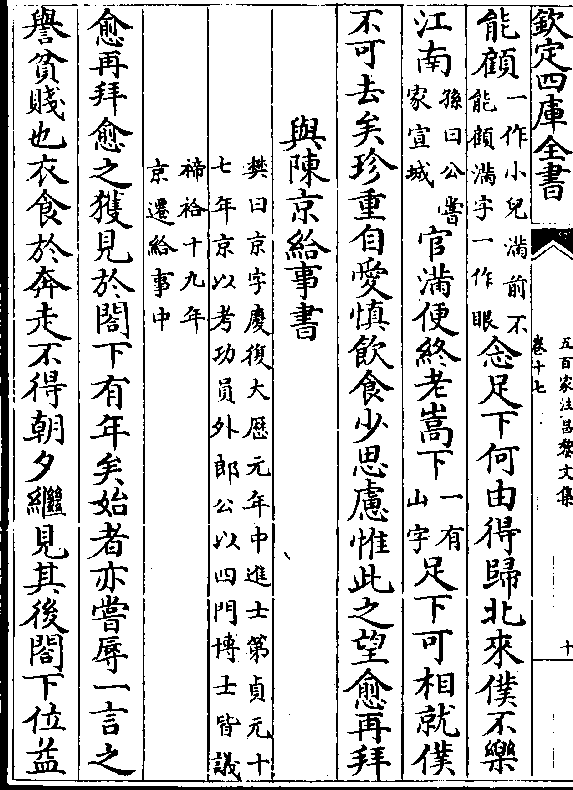 欽定四庫全書
五百家注昌黎文集
卷十七
十
能顧一作小兒滿前不能顧滿字一作眼念足下何由得歸北來僕不樂
江南孫曰公嘗家宣城官滿便終老嵩下一有山字足下可相就僕
不可去矣珍重自愛慎飲食少思慮惟此之望愈再拜
與陳京給事書
樊曰京字慶復大厯元年中進士第貞元十
七年京以考功員外郎公以四門博士皆議
禘祫十九年
京遷給事中
愈再拜愈之獲見於閣下有年矣始者亦嘗辱一言之
譽貧賤也衣食於奔走不得朝夕繼見其後閣下位益